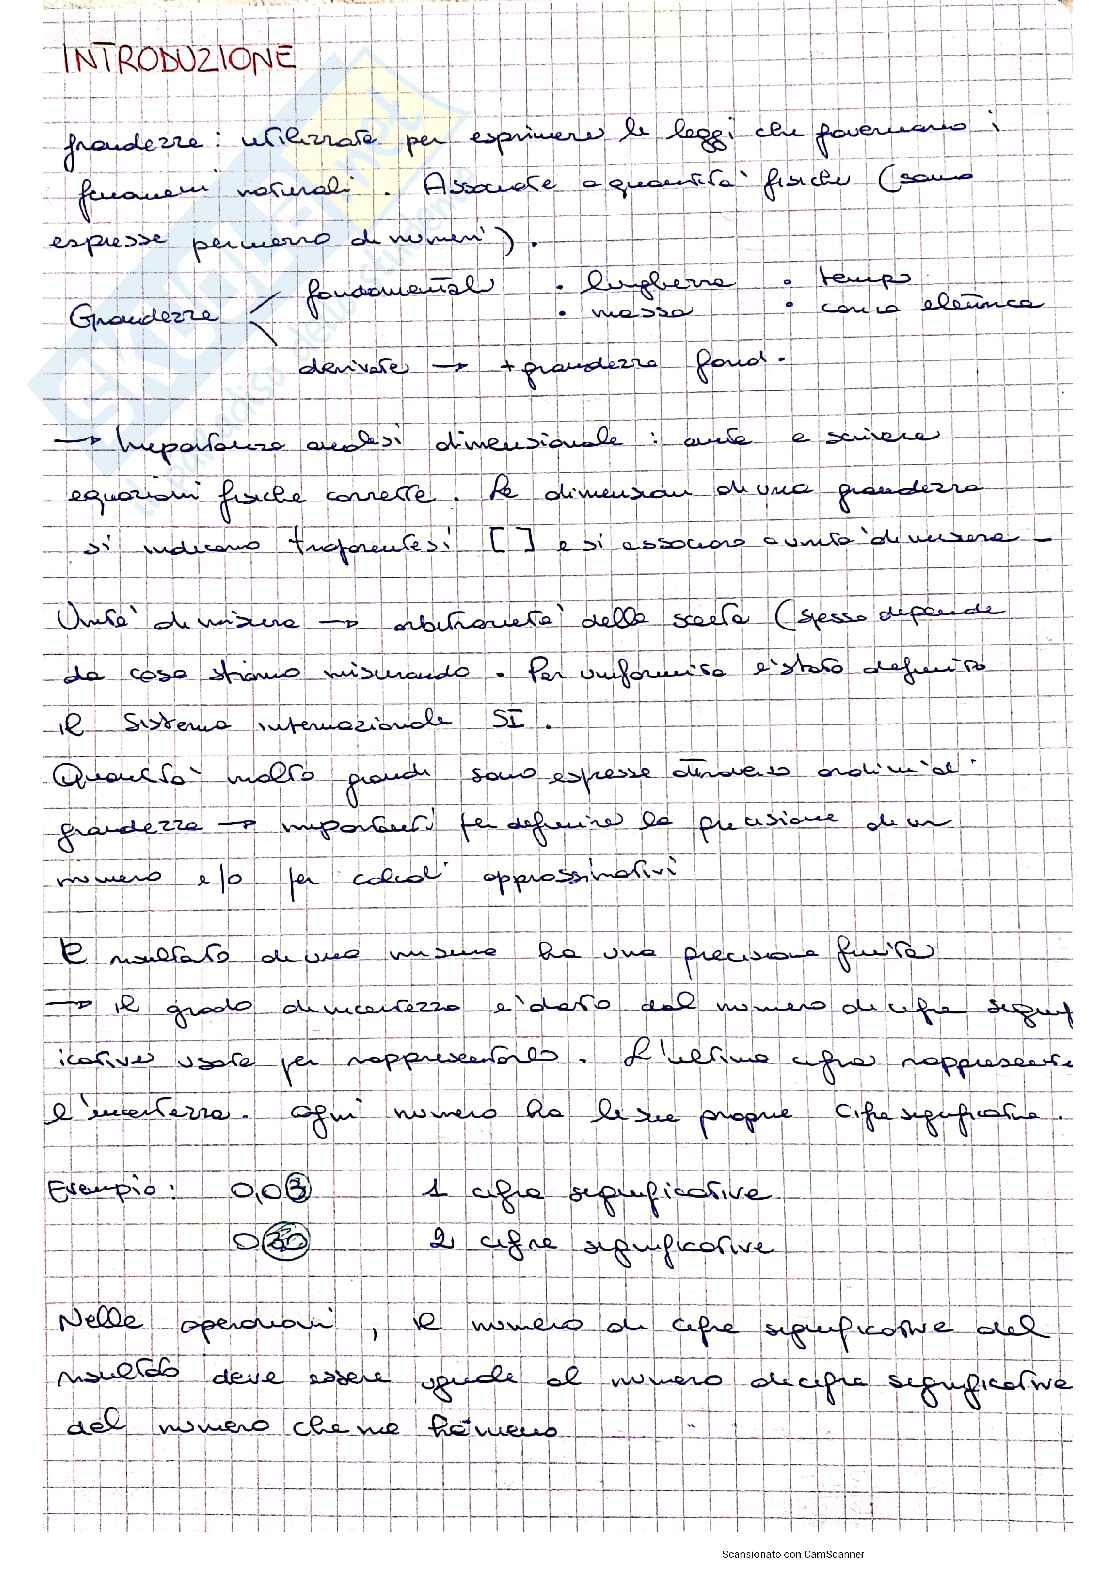 INTRODUZIONE
grandezze: utilizzate per esprimere le leggi che governano i
fenomeni naturali. Associate a quantità fisiche (sono
espresse per mezzo di numeri).
Grandezze fondamentali • lunghezza • tempo
• massa • carica elettrica
derivate → + grandezze fond.
→ Importanza analisi dimensionale: aiuta a scrivere
equazioni fisiche corrette. Le dimensioni di una grandezza
si indicano tra parentesi [ ] e si associano a unità di misura
Unità di misura → arbitrarietà della scelta (spesso dipende
da cosa stiamo misurando. Per uniformità è stato definito
il sistema internazionale SI.
Quantità molto grandi sono espresse attraverso ordini di
grandezza → importanti per definire la precisione di un
numero e/o per calcoli approssimativi
Il risultato di una misura ha una precisione finita
→ il grado di incertezza è dato dal numero di cifre signif
icative usate per rappresentarlo. L'ultima cifra rappresenta
l'incertezza. Ogni numero ha le sue proprie cifre significative.
Esempio: 0,03 1 cifre significative
030 2 cifre significative
Nelle operazioni, il numero di cifre significative del
risultato deve essere uguale al numero di cifre significative
del numero che ne ha meno
SKUOLA.net
il paradiso dello studente
Scansionato con CamScanner